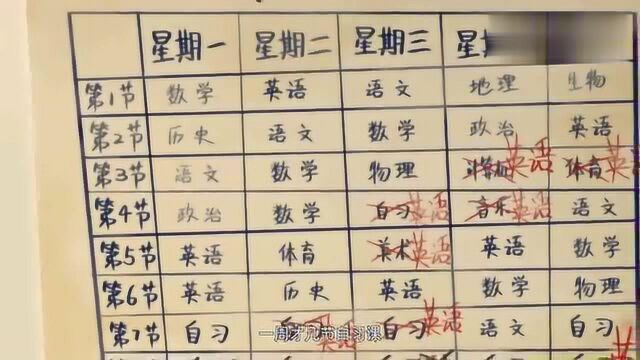 星期一 星期二 星期三 星
第1节 数学 英语 语文 地理 生物
第2节 历史 语文 数学 政治 英语
第3节 语文 数学 物理 英语 体育 英语
第4节 政治 数学 自习 英语 音乐 英语 语文
第5节 英语 体育 美术 英语 英语 数学
第6节 英语 历史 英语 数学 物理
第7节 自习 自习 英语 自习 英语 语文 自习
一周才几节自习课